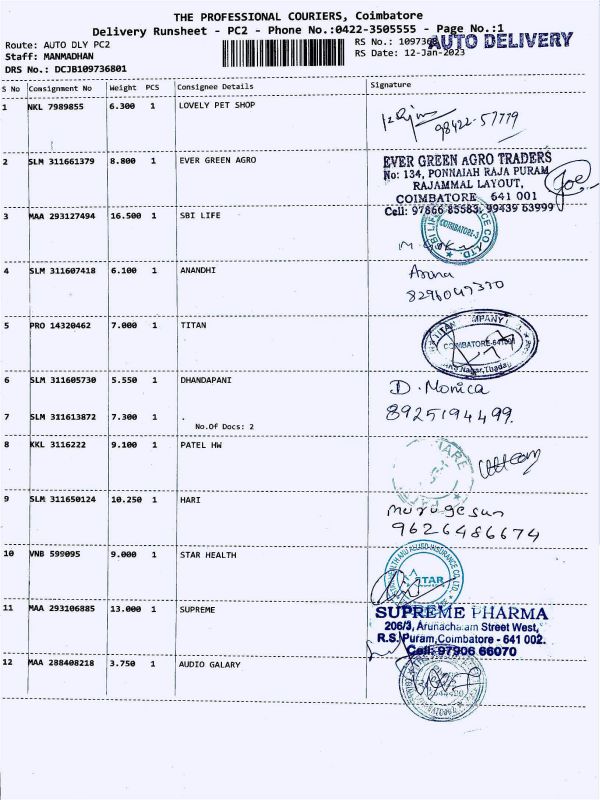 THE PROFESSIONAL COURIERS, Coimbatore
Delivery Runsheet - PC2 - Phone No.:0422-3505555 - Page No.:1
Route: AUTO DLY PC2
RS No.: 1097368
AUTO DELIVERY
Staff: MANMADHAN
RS Date: 12-Jan-2023
DRS No.: DCJB109736801
S No Consignment No Weight PCS Consignee Details Signature
1 NKL 7989855 6.300 1 LOVELY PET SHOP
98422-57779
2 SLM 311661379 8.800 1 EVER GREEN AGRO
EVER GREEN AGRO TRADERS
No: 134, PONNAIAH RAJA PURAM,
RAJAMMAL LAYOUT,
COIMBATORE 641 001
Cell: 97866 85583, 99439 63999
Joe
3 MAA 293127494 16.500 1 SBI LIFE
COIMBATORE-3
4 SLM 311607418 6.100 1 ANANDHI
8296047370
5 PRO 14320462 7.000 1 TITAN
6 SLM 311605730 5.550 1 DHANDAPANI
D. Monica
7 SLM 311613872 7.300 1 .
8925194499.
No.Of Docs: 2
8 KKL 3116222 9.100 1 PATEL HW
9 SLM 311650124 10.250 1 HARI
murugesan
9626486674
10 VNB 599095 9.000 1 STAR HEALTH
STAR
11 MAA 293106885 13.000 1 SUPREME
SUPREME PHARMA
206/3, Arunachalam Street West,
R.S. Puram, Coimbatore - 641 002.
Cell: 97906 66070
12 MAA 288408218 3.750 1 AUDIO GALARY